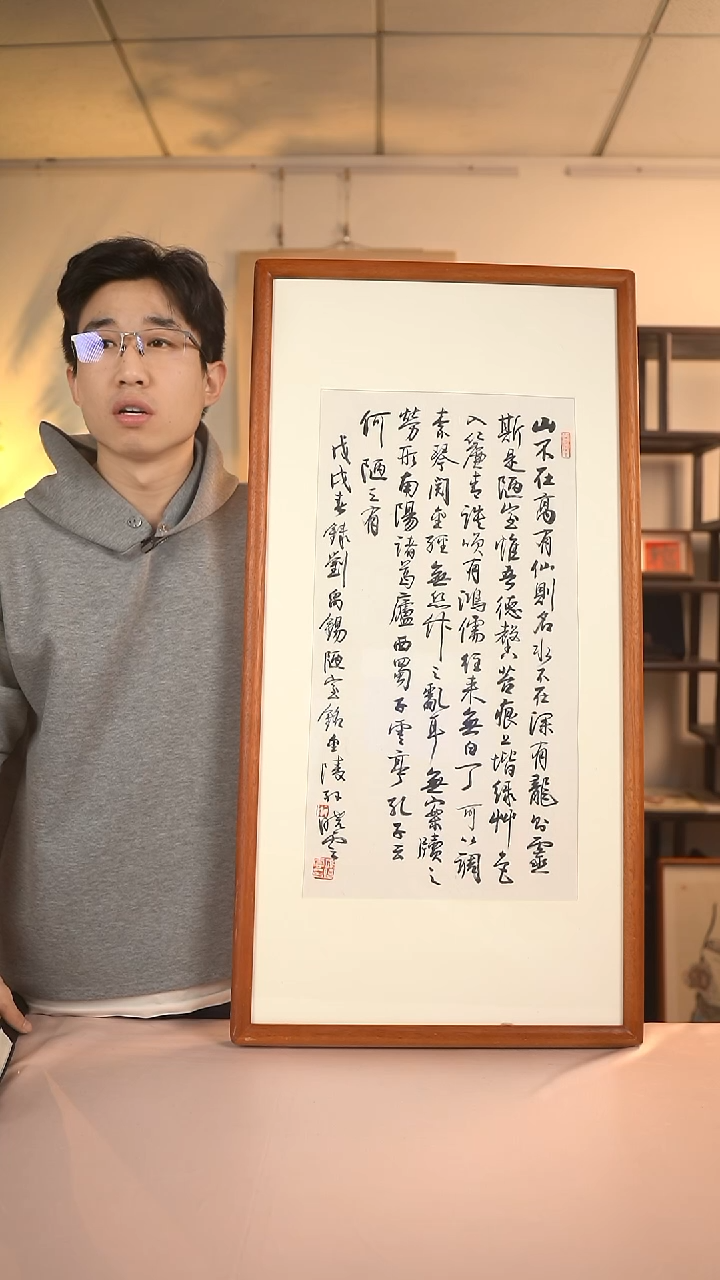 山不在高有仙則名水不在深有龍則靈
斯是陋室惟吾德馨苔痕上堦綠艸色
入簾青談咲有鴻儒往来無白丁可以調
素琴閱金經無絲竹之亂耳無案牘之
勞形南陽諸葛廬西蜀子雲亭孔子云
何陋之有
戊戌春錄劉禹錫陋室銘金陵孫曉雲